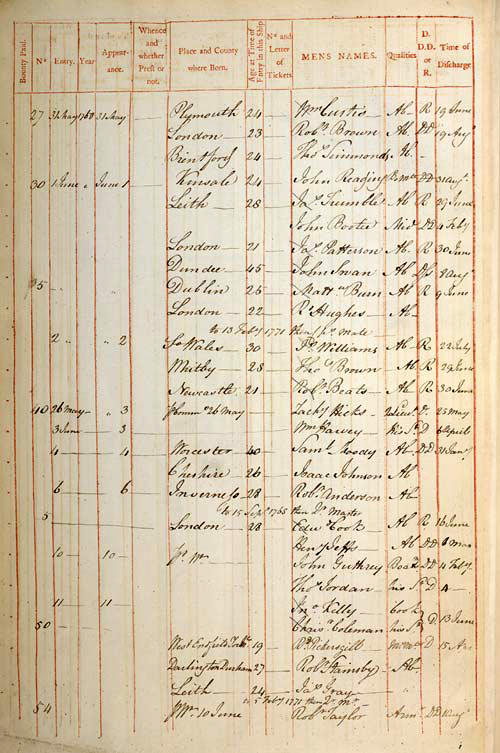 Bounty Paid. Nº Entry. Year Appearance. Whence and whether Prest or not. Place and County where Born. Age at Time of Entry in this Ship Nº and Letter of Tickets. MENS NAMES. Qualities D. D.D. or R. Time of Discharge
27 31 May 1768 31 May Plymouth 24 Wm Curtis Ab R 19 June
London 23 Robt Brown Ab DD 19 Aug
Brentford 24 Thos Simmonds Ab
30 1 June 1 Kinsale 24 John Reading DD 31 Augt
Leith 28 Jas Trumble Ab R 29 June
John Bootie Mid DD 4 Feby
London 21 Jas Patterson Ab R 30 June
Dundee 45 John Swan Ab DD 8 Augt
35 Dublin 25 Ab R 9 June
London 22 Rd Hughes Ab
to 13 Feby 1771 then Mate
2 " 2 So Wales 30 Williams Ab R 22 July
Whitby 28 Thos Brown Ab R 29 June
Newcastle 21 Robt Beats Ab R 30 June
40 26 May " 3 26 May Zachy Hicks 2d Lieut D 25 May
3 June 3 Wm Harvey his St D April
4 4 Worcester 40 Saml Moody Ab DD 31 Jany
Cheshire 26 Isaac Johnson Ab
6 6 Inverness 28 Robt Anderson Ab
to 15 Sept 1765 then Qr Master
London 28 Edwd Cook Ab R 16 June
Heny Jeffs Ab DD
10 10 John Guthrey Boatn DD 4 Feby
Thos Jordan his St D 4
11 11 Jno Kelly Cook
50 Christr Coleman his St D 13 June
19 Rd Pickersgill D 15
Darlington Durham 27 Robt Ab
Leith 24 Jas Gray "
to 5 Feby 1771 then Qr Mr
54 10 June Robt Taylor Armr DD 1 Augt